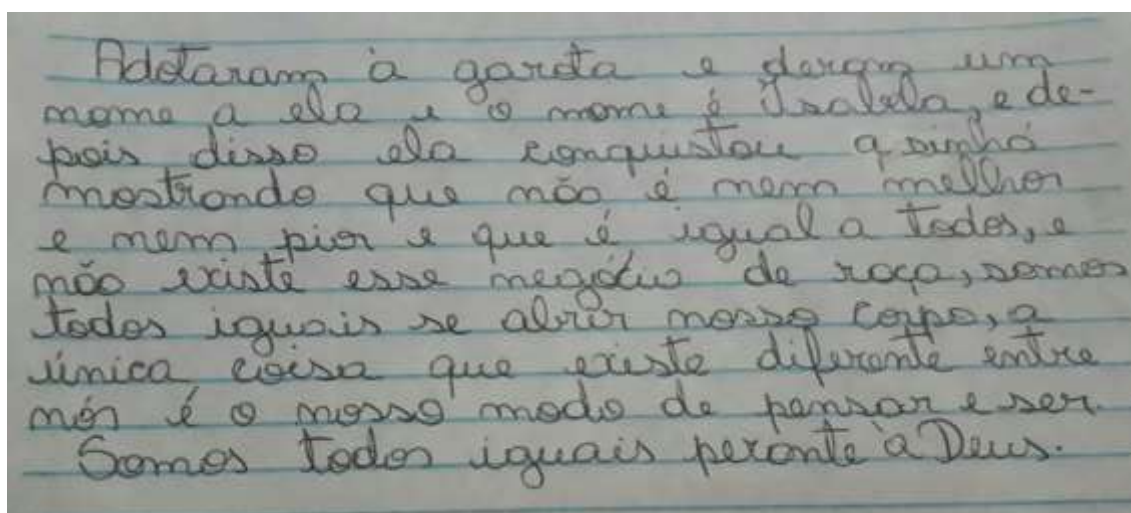 Adotaram à garota e deram um
nome a ela e o nome é Isabela, e de-
pois disso ela conquistou a sinhá
mostrando que não é nem melhor
e nem pior e que é igual a todos, e
não existe esse negócio de raça, somos
todos iguais se abrir nosso corpo, a
única coisa que existe diferente entre
nós é o nosso modo de pensar e ser.
Somos todos iguais perante à Deus.